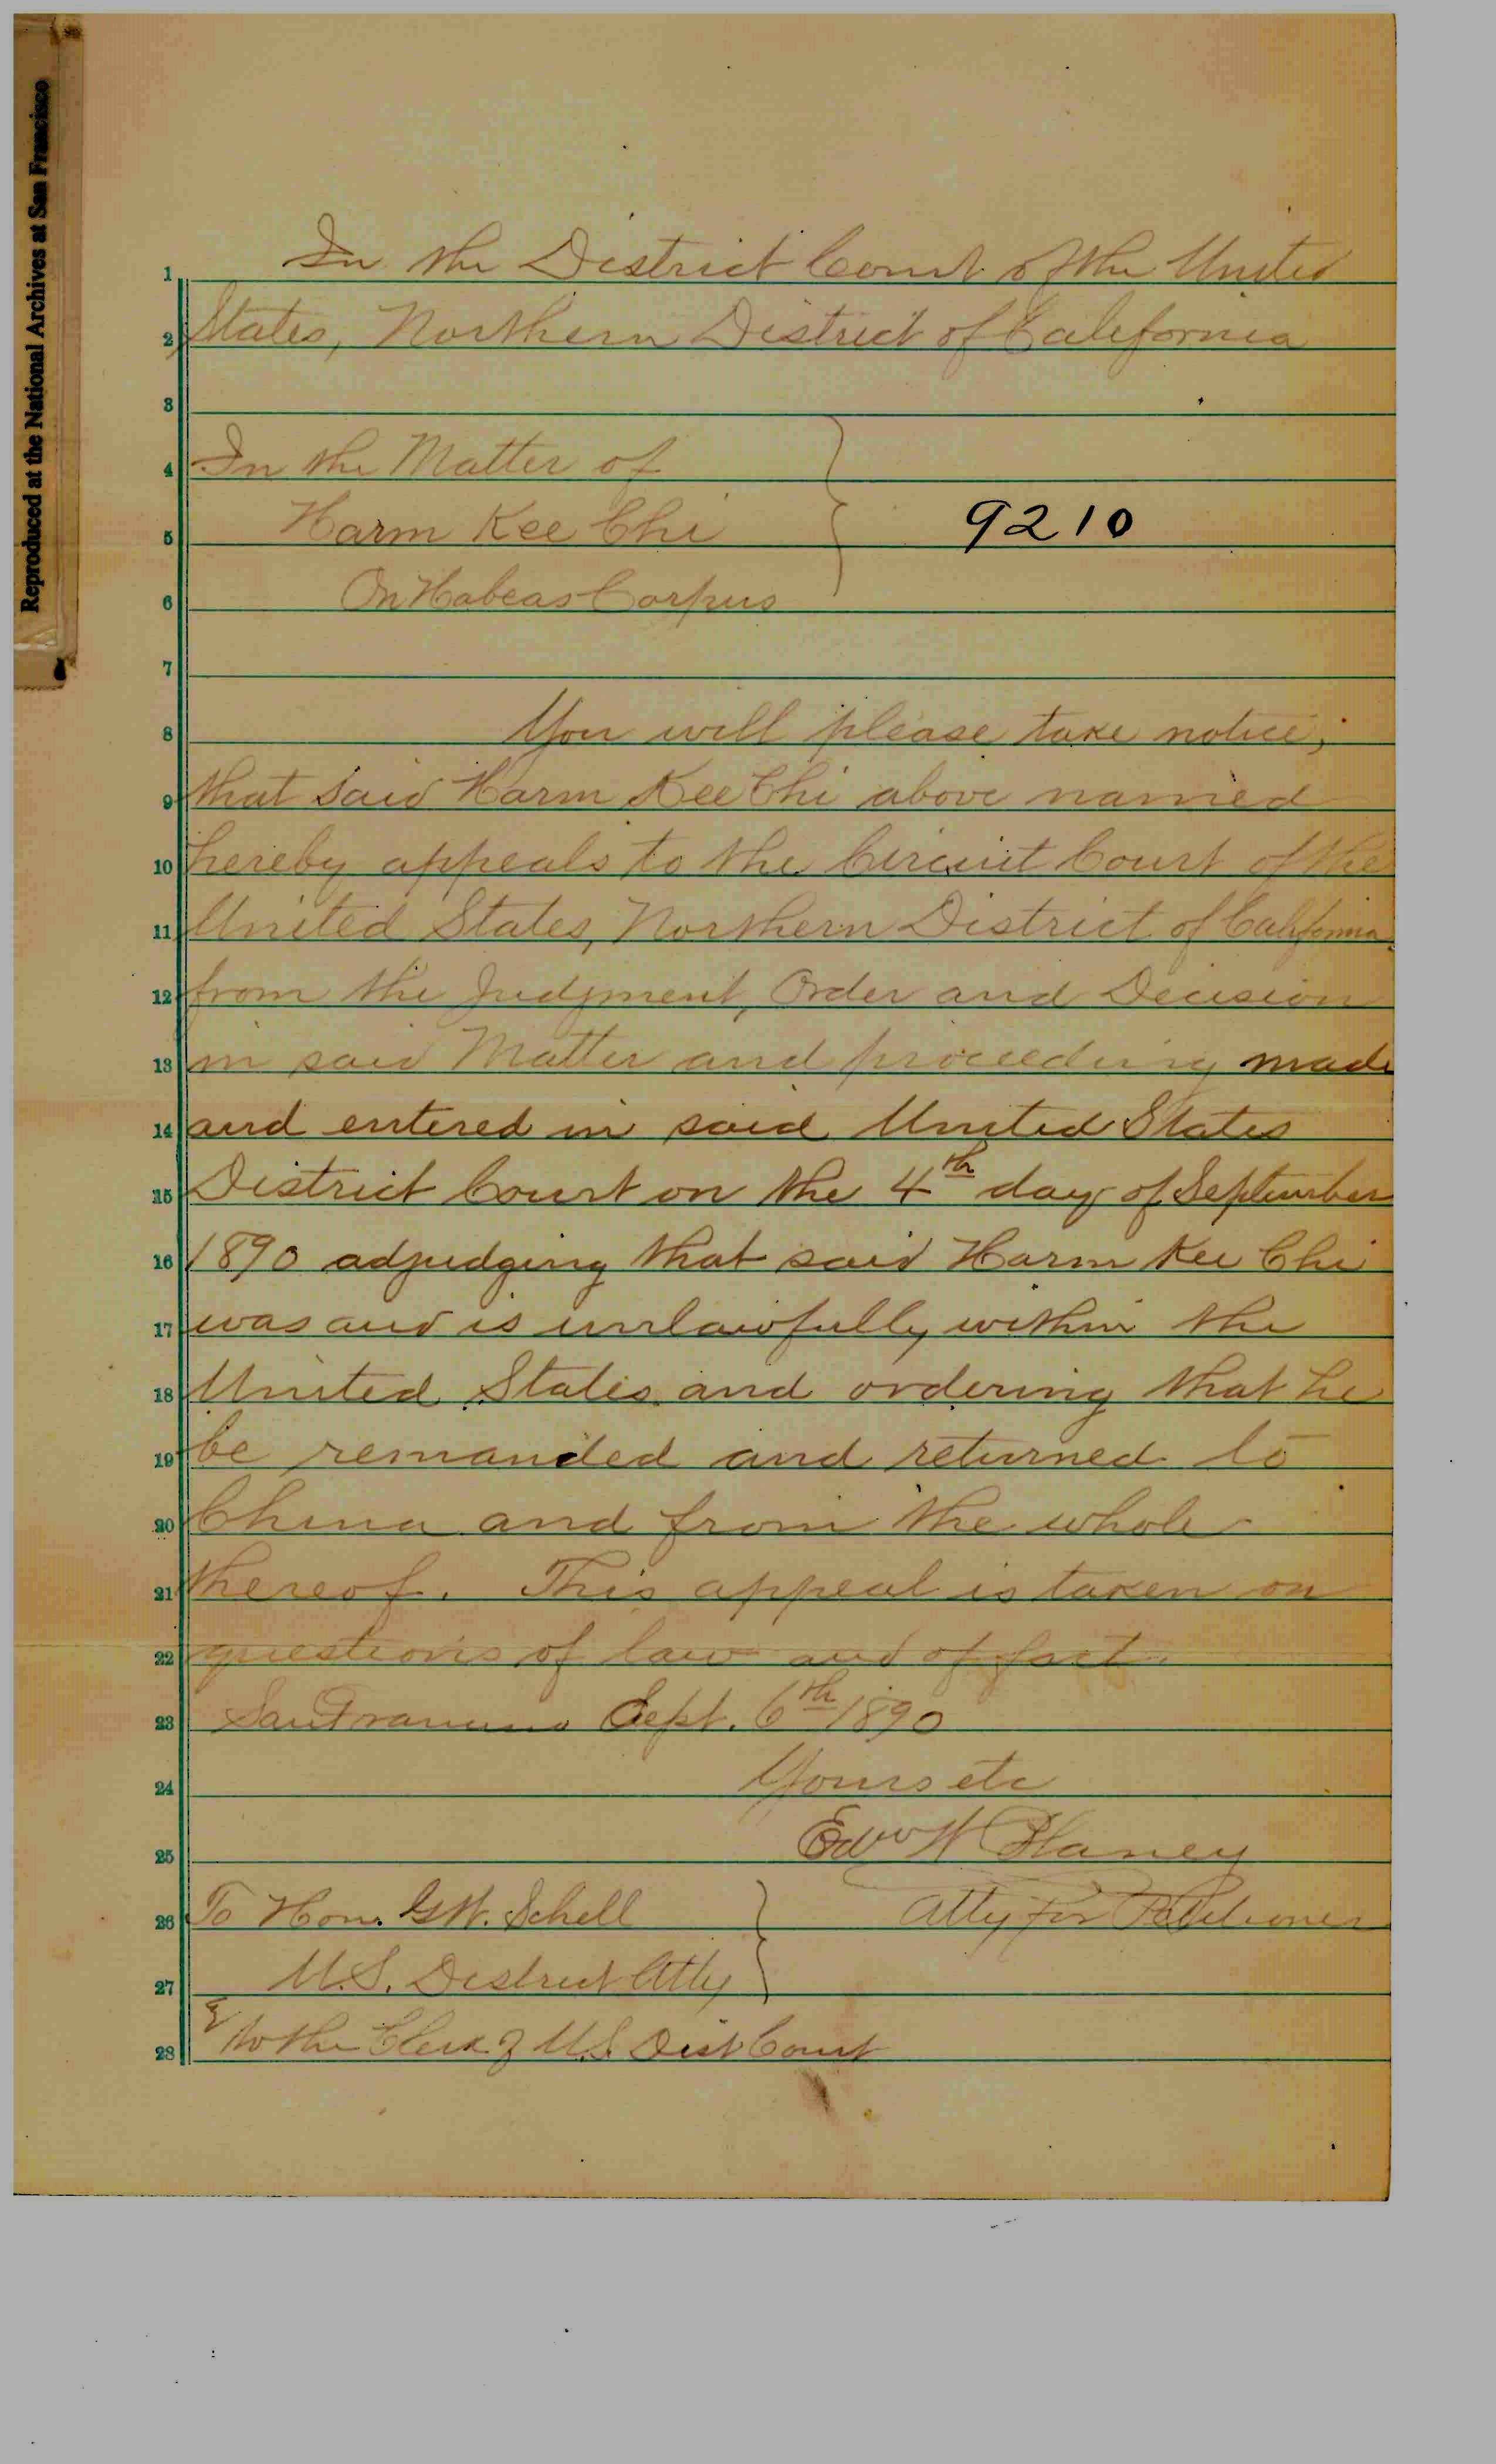 Reproduced at the National Archives at San Francisco
1 In the District Court of the United
2 States, Northern District of California
3
4 In the Matter of
5 Harm Kee Chi 9210
6 On Habeas Corpus
7
8 You will please take notice,
9 that said Harm Kee Chi above named
10 hereby appeals to the Circuit Court of the
11 United States, Northern District of California
12 from the Judgment, Order and Decision
13 in said Matter and proceeding made
14 and entered in said United States
15 District Court on the 4th day of September
16 1890 adjudging that said Harm Kee Chi
17 was and is unlawfully within the
18 United States and ordering that he
19 be remanded and returned to
20 China and from the whole
21 thereof. This appeal is taken on
22 questions of law and of fact.
23 San Francisco Sept. 6th 1890
24 Yours etc
25 Edw W
26 To Hon. G W. Schell } Atty for Petitioner
27 U.S. District Atty
28 & to the Clerk of U.S. Dist Court